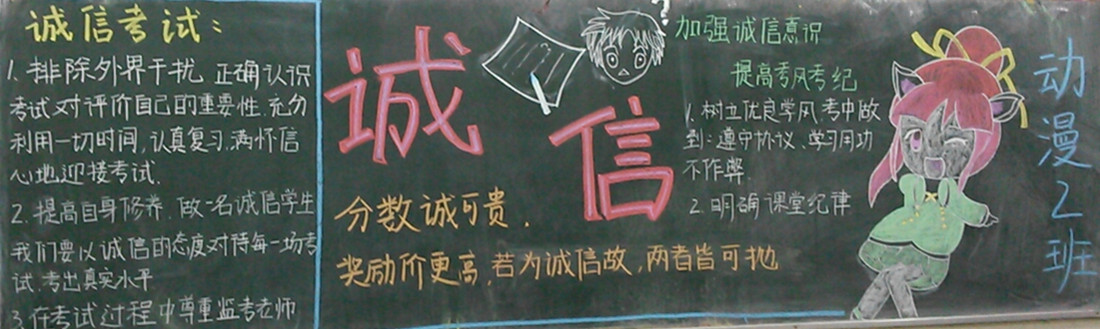 诚信考试:
1、排除外界干扰 正确认识
考试对评价自己的重要性.充分
利用一切时间,认真复习.满怀信
心地迎接考试.
2.提高自身修养.做一名诚信学生
我们要以诚信的态度对待每一场考
试.考出真实水平
3.在考试过程中尊重监考老师
诚信
分数诚可贵.
奖励价更高.若为诚信故,两者皆可抛
加强诚信意识
提高考风考纪
1.树立优良学风.考中做
到:遵守协议、学习用功
不作弊.
2.明确课堂纪律
动漫2班